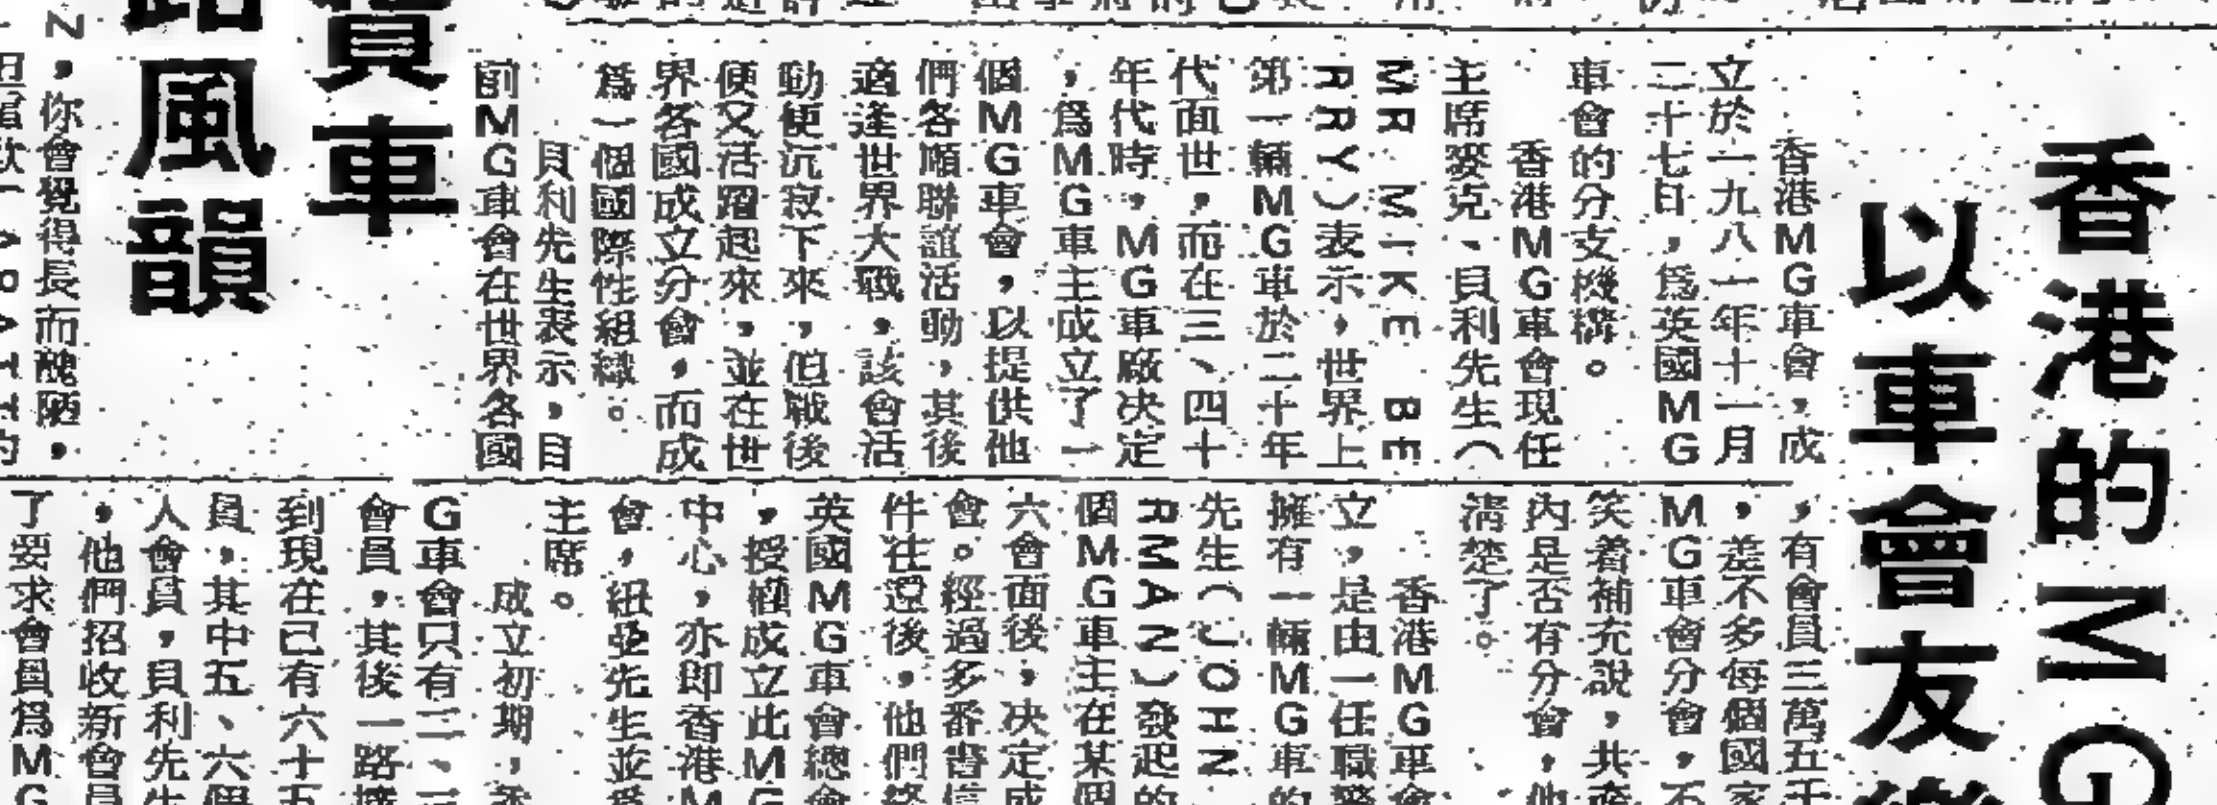 香港的MG
以車會友
香港MG車會，成
立於一九八一年十一月
二十七日，爲英國MG
車會的分支機構。
香港MG車會現任
主席麥克、貝利先生（
MR MIKE BE
RRY）表示，世界上
第一輛MG車於二十年
代面世，而在三、四十
年代時，MG車廠決定
，爲MG車主成立了一
個MG車會，以提供他
們各順聯誼活動，其後
適逢世界大戰，該會活
動便沉寂下來，但戰後
便又活躍起來，並在世
界各國成立分會，而成
爲一個國際性組織。
貝利先生表示，目
前MG車會在世界各國
，有會員三萬五千
，差不多每個國家
MG車會分會，不
笑着補充說，共產
內是否有分會，他
清楚了。
香港MG車會
立，是由一任職警
擁有一輛MG車的
先生（JOHN
RMAN）發起的
個MG車主在某個
六會面後，決定成
會。經過多番書信
件往還後，他們終
英國MG車會總會
，授權成立此MG
中心，亦即香港M
會，紐曼先生並爲
主席。
成立初期，
G車會只有二、三
會員，其後一路擴
到現在已有六十五
員，其中五、六個
人會員，貝利先生
，他們招收新會員
了要求會員爲MG
貨車
風韻
，你會覺得長而醜陋，